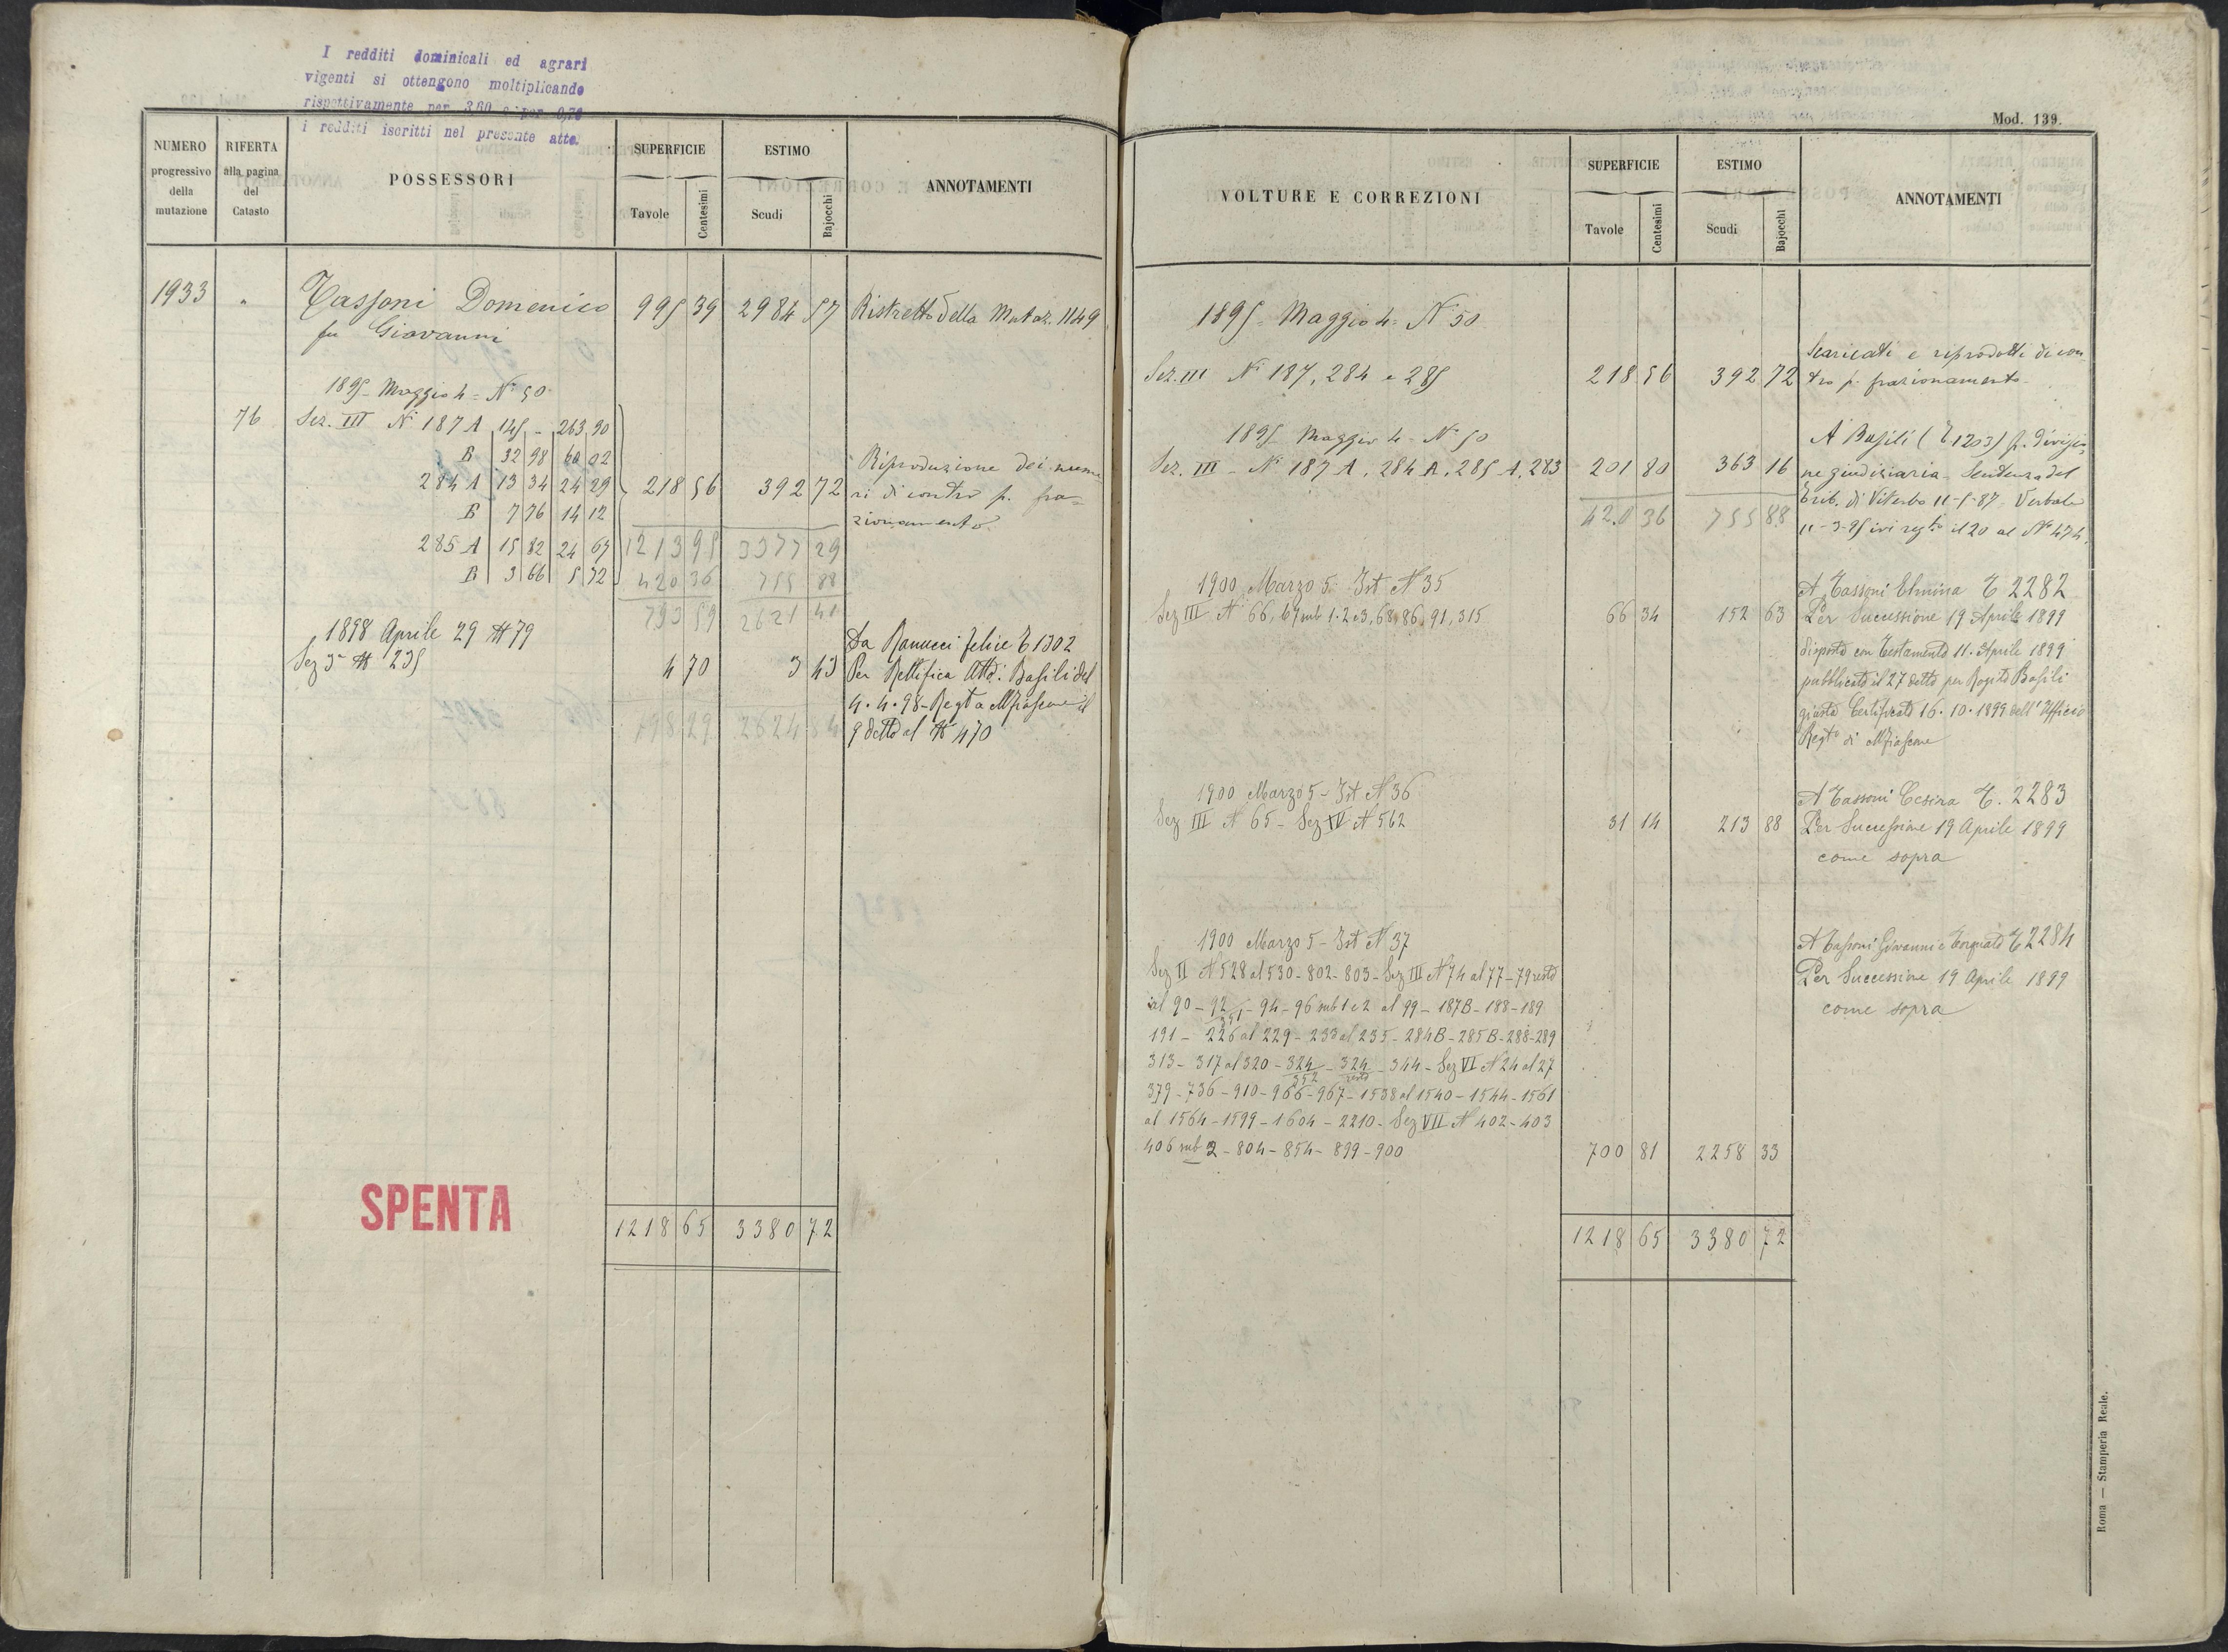 I redditi dominicali ed agrari
vigenti si ottengono moltiplicando
rispettivamente per 3,60 e per 0,70
i redditi iscritti nel presente atto.
NUMERO progressivo della mutazione
RIFERTA alla pagina del Catasto
POSSESSORI
SUPERFICIE
Tavole Centesimi
ESTIMO
Scudi Bajocchi
ANNOTAMENTI
1933 " Tassoni Domenico 995 39 2984 57 Ristretto della Mutaz. 1149
fu Giovanni
1895 Maggio 4 = N° 50
76 Sez. III Ni 187 A 145 - 263 90
B 32 98 60 02
284 A 13 34 24 29 218 56 392 72
B 7 76 14 12
285 A 15 82 24 67
B 3 66 5 72
Riproduzione dei nume
ri di contro p. fra=
zionamento
1213 95 3377 29
420 36 755 88
793 59 2621 41
1898 Aprile 29 N 79
Sez 3a N 235 4 70 3 43
Da Ranucci Felice T 1302
Per Rettifica Atto: Basili del
4. 4. 98 - Regto a Mfiascone il
9 detto al N 470
798 29 2624 84
SPENTA
1218 65 3380 72
Mod. 139.
VOLTURE E CORREZIONI
SUPERFICIE
Tavole Centesimi
ESTIMO
Scudi Bajocchi
ANNOTAMENTI
1895 = Maggio 4 = N° 50
Sez. III Ni 187, 284 e 285 218 56 392 72
Scaricati e riprodotti di con
tro p. frazionamento
1895 Maggio 4 - N° 50
Sez. III - Ni 187 A, 284 A, 285 A, 283 201 80 363 16
A Basili (T 1203) p. divisio=
ne giudiziaria - Sentenza del
Trib. di Viterbo 11-5-87 - Verbale
11-3-95 ivi regto il 20 al N° 474.
420 36 755 88
1900 Marzo 5 - Ist N 35
Sez III N 66, 67 sub 1.2 e 3, 68, 86, 91, 315 66 34 152 63
A Tassoni Elmina T 2282
Per Successione 19 Aprile 1899
disposta con Testamento 11. Aprile 1899
pubblicato il 27 detto per Rogito Basili
giusta Certificato 16. 10. 1899 dell'Ufficio
Regto di Mfiascone
1900 Marzo 5 - Ist N 36
Sez III N 65 - Sez IV N 562 31 14 213 88
A Tassoni Cesira T. 2283
Per Successione 19 Aprile 1899
come sopra
1900 Marzo 5 - Ist N 37
Sez II N 528 al 530 - 802 - 803 - Sez III N 74 al 77 - 79 resto
al 90 - 92/351 - 94 - 96 sub 1 e 2 al 99 - 187B - 188 - 189
191 - 226 al 229 - 233 al 235 - 284B - 285B - 288 - 289
313 - 317 al 320 - 324/352 - 324/resto - 344 - Sez VI N 24 al 27
379 - 736 - 910 - 966 - 967 - 1538 al 1540 - 1544 - 1561
al 1564 - 1599 - 1604 - 2210 - Sez VII N 402 - 403
406 sub 2 - 804 - 854 - 899 - 900 700 81 2258 33
A Tassoni Giovanni e Torquato T 2284
Per Successione 19 Aprile 1899
come sopra
1218 65 3380 72
Roma — Stamperia Reale.